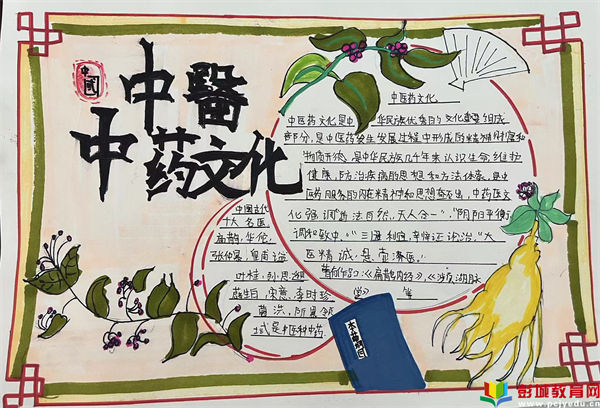 中國
中醫
中药文化
中医药文化
中医药文化是中华民族优秀的文化重要组成
部分,是中医药发生发展过程中形成的精神财富和
物质形态,是中华民族几千年来认识生命维护
健康、防治疾病的思想和方法体系,是中
医药服务的内在精神和思想基础,中药医文
化强调"道法自然,天人合一","阴阳平衡
调和致中","三因制宜,辨证论治,"大
医精诚,悬壶济医."
中国古代
十大名医
扁鹊,华佗,
张仲景,皇甫谧
叶桂,孙思邈
宋慈,李时珍
葛洪,
本草纲目
彭城教育网
www.pcjyedu.cn